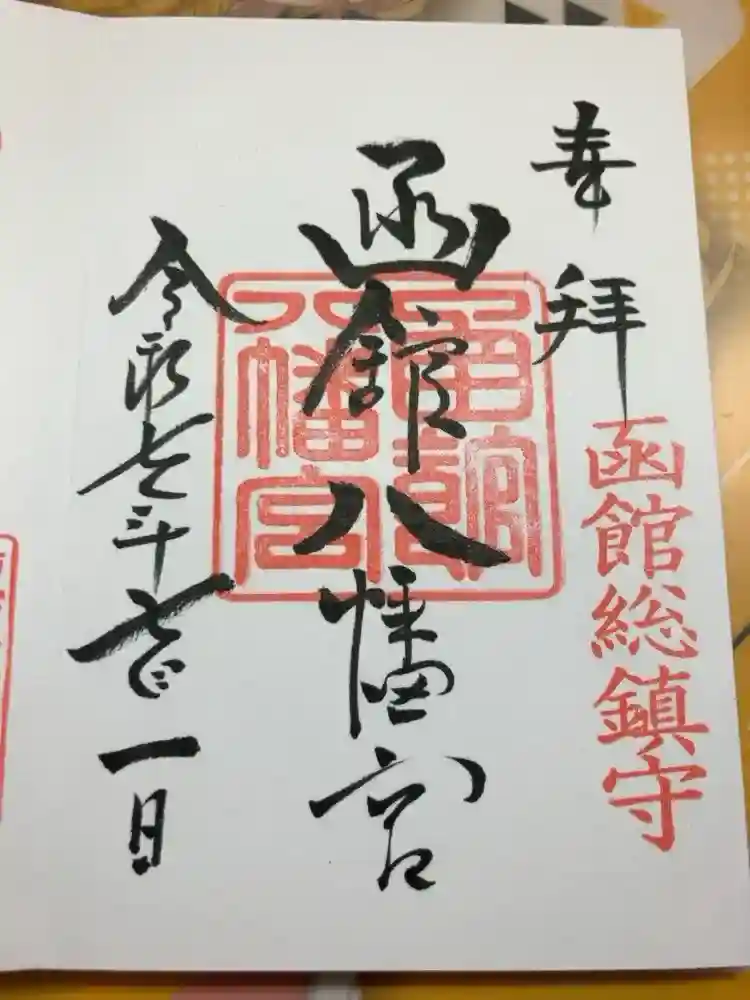 奉拝
函館総鎮守
函館八幡宮
函館
八幡宮
令和七年七月一日